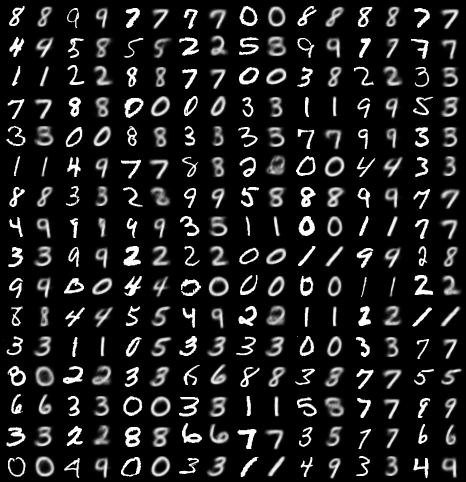 8 8 9 9 7 7 7 7 0 0 8 8 8 8 7 7
4 4 5 8 5 8 2 2 5 3 9 9 7 7 7 7
1 1 2 2 8 8 7 7 0 0 3 8 2 2 3 3
7 7 8 8 0 0 0 0 3 3 1 1 9 9 5 3
3 3 0 0 8 8 3 3 3 3 7 7 9 9 3 3
1 1 4 9 7 7 8 8 2 0 0 4 4 3 3
8 8 3 3 2 2 9 9 5 8 8 8 9 9 7 7
4 9 9 9 9 9 3 5 1 1 0 0 1 1 7 7
3 3 9 9 2 2 2 2 0 0 1 1 9 9 2 8
9 9 0 0 4 4 0 0 0 0 0 0 1 1 2 2
8 8 4 4 5 5 4 9 2 2 1 1 2 2 1 1
3 3 1 1 0 5 3 3 3 3 0 0 3 3 7 7
8 0 2 2 3 3 6 6 8 8 3 8 7 7 5 5
6 6 3 3 0 0 3 3 1 1 5 8 7 7 9 9
3 3 2 2 8 8 6 6 7 7 3 5 7 7 6 6
0 0 4 9 0 0 3 3 1 1 4 9 3 3 4 9